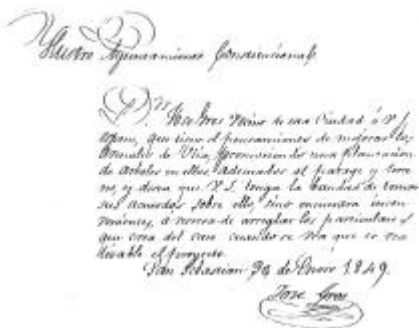 Ilustre Ayuntamiento Constitucional
Dn José Gros Vecino de esta Ciudad á V.S.
espone, que tiene el pensamiento de mejorar los
Arenales de Ulia, promoviendo una plantacion
de arboles en ellos adecuados al parage y terre
no, y desea que V.S. tenga la bondad de tomar
sus acuerdos sobre ello, sino encuentra incon
veniente, á reserva de arreglar los particulares
que crea del caso cuando se vea que es rea
lizable el proyecto.
San Sebastian 30 de Enero 1849.
José Gros